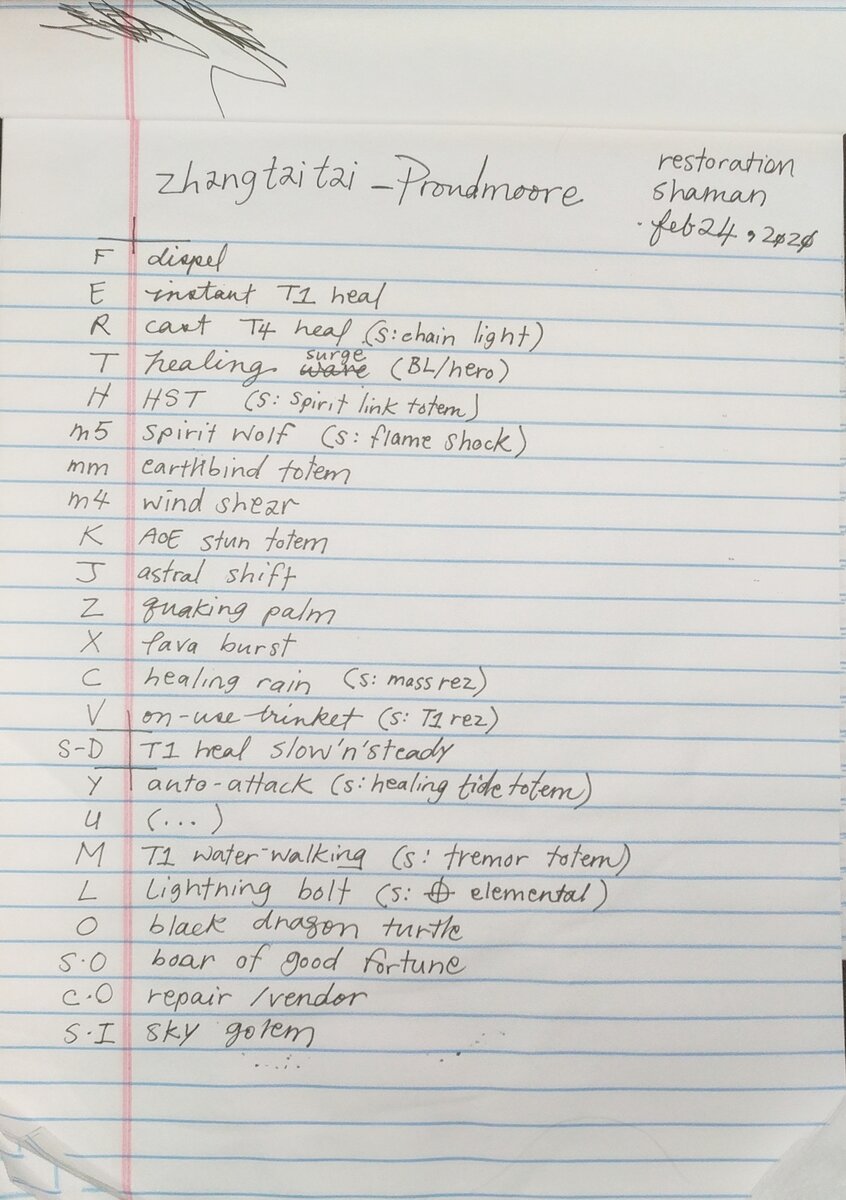 zhangtaitai - Proudmoore
restoration
shaman
feb 24, 2020
F dispel
E instant T1 heal
R cast T4 heal (s: chain light)
T healing surge (BL/hero)
H HST (s: spirit link totem)
m5 spirit wolf (s: flame shock)
mm earthbind totem
m4 wind shear
K AoE stun totem
J astral shift
Z quaking palm
X lava burst
C healing rain (s: mass rez)
V on-use trinket (s: T1 rez)
S-D T1 heal slow'n'steady
Y auto-attack (s: healing tide totem)
U (...)
M T1 water-walking (s: tremor totem)
L Lightning bolt (s: ⊕ elemental)
O black dragon turtle
S·O boar of good fortune
C·O repair / vendor
S·I sky golem